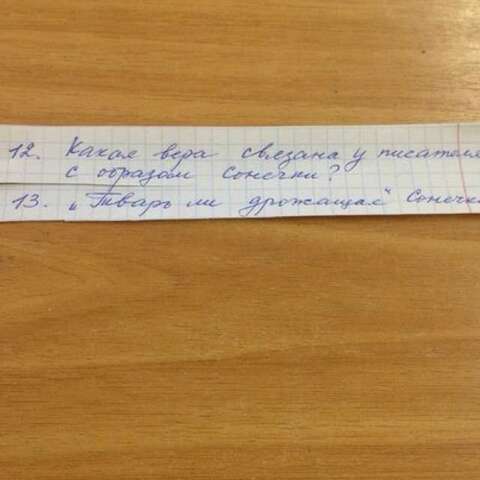 12. Какая вера связана у писателя
с образом Сонечки?
13. „Тварь ли дрожащая" Сонечка